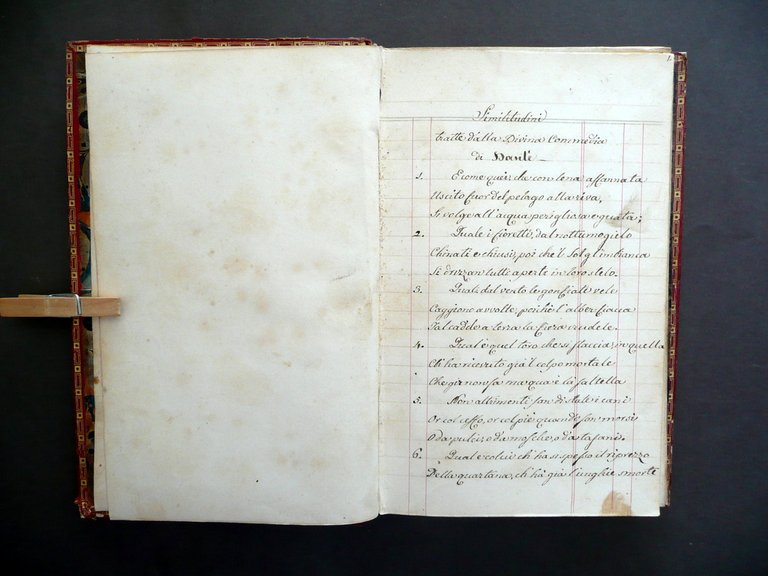 1.
Similitudini
tratte dalla Divina Commedia
di Dante
1. E come quei, che con lena affannata
Uscito fuor del pelago alla riva,
Si volge all'acqua perigliosa e guata;
2. Quale i fioretti, dal notturno gielo
Chinati e chiusi, poi che 'l Sol gl'imbianca
Si drizzan tutti aperti in loro stelo.
3. Quali dal vento le gonfiate vele
Caggiono avvolte, poichè l'alber fiacca
Tal cadde a terra la fiera crudele.
4. Qual è quel toro che si slaccia in quella
Ch'ha ricevuto già 'l colpo mortale
Che gir non sa ma qua e là saltella
5. Non altrimenti fan di state i cani
Or col ceffo, or col piè quando son morsi
O da pulci, o da mosche, o da tafani.
6. Qual è colui ch'ha sì presso il riprezzo
Della quartana, ch'ha già l'unghie smorte